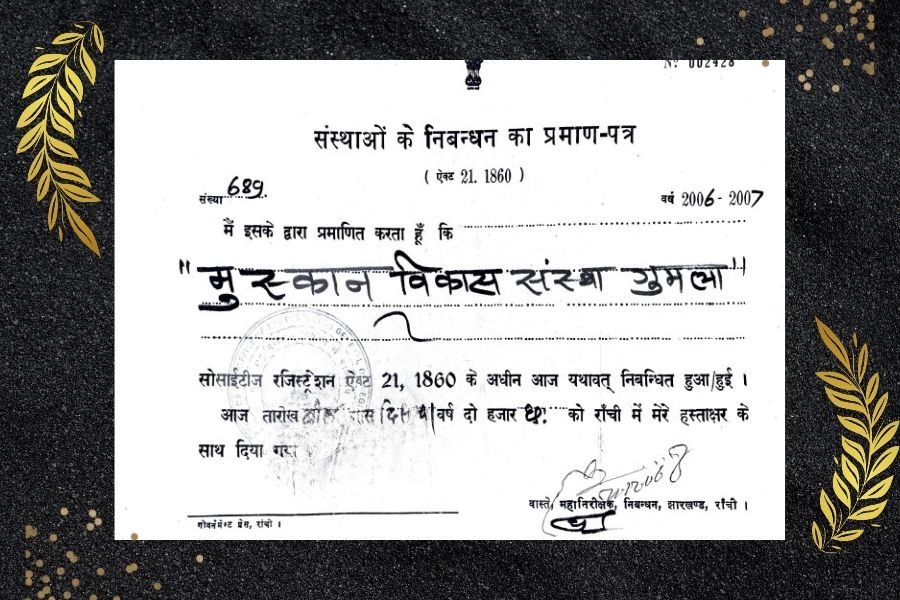 Nº 002428
संस्थाओं के निबन्धन का प्रमाण-पत्र
( ऐक्ट 21. 1860 )
संख्या 689
वर्ष 2006 - 2007
मैं इसके द्वारा प्रमाणित करता हूँ कि
"मुस्कान विकास संस्था गुमला"
सोसाईटीज रजिस्ट्रेशन ऐक्ट 21, 1860 के अधीन आज यथावत् निबन्धित हुआ/हुई ।
आज तारीख मास वर्ष दो हजार छः को राँची में मेरे हस्ताक्षर के
साथ दिया गया
वास्ते, महानिरीक्षक, निबन्धन, झारखण्ड, राँची ।
गोवर्नमेन्ट प्रेस, रांची ।